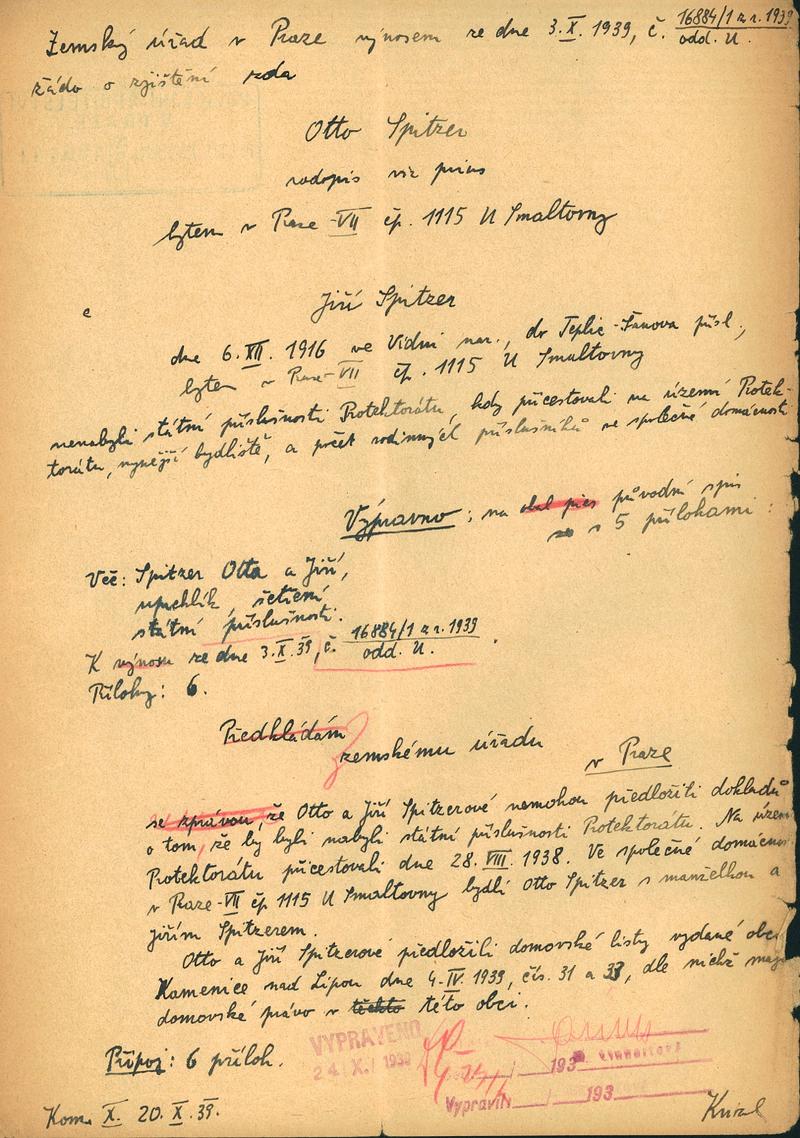 Zemský úřad v Praze výnosem ze dne 3.X.1939, č. 16884/1 z r. 1939
odd. U.
žádá o zjištění zda
Otto Spitzer
rodopis viz prius
bytem v Praze-VII čp. 1115 U Smaltovny
a
Jiří Spitzer
dne 6.XII. 1916 ve Vídni nar., do Teplic-Šanova přísl.,
bytem v Praze-VII čp. 1115 U Smaltovny
nenabyli státní příslušnosti Protektorátu, kdy přicestovali na území Protek-
torátu, nynější bydliště, a počet rodinných příslušníků ve společné domácnosti
Výpravno: na původní spis
s 5 přílohami:
Věc: Spitzer Otta a Jiří,
uprchlík, šetření
státní příslušnosti.
K výnosu ze dne 3.X.39, č. 16884/1 z r. 1939
odd. U.
Přílohy: 6.
Předkládám
zemskému úřadu
v Praze
se zprávou, že Otto a Jiří Spitzerové nemohou předložiti dokladů
o tom, že by byli nabyli státní příslušnosti Protektorátu. Na území
Protektorátu přicestovali dne 28. VIII. 1938. Ve společné domácnosti
v Praze-VII čp 1115 U Smaltovny bydlí Otto Spitzer s manželkou a
Jiřím Spitzerem.
Otto a Jiří Spitzerové předložili domovské listy vydané obcí
Kamenice nad Lipou dne 4.IV.1939, čís. 31 a 33, dle nichž mají
domovské právo v těchto této obci.
Připoj: 6 příloh.
VYPRAVENO
24. X. 1939
193
Vypravil 193
Kom. X. 20.X.39.